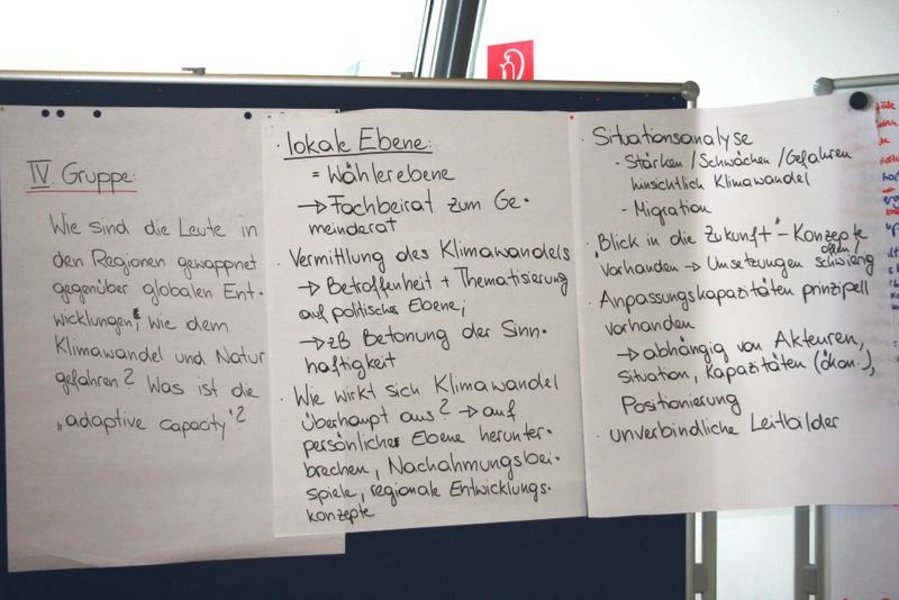 IV Gruppe:
Wie sind die Leute in
den Regionen gewappnet
gegenüber globalen Ent-
wicklungen, wie dem
Klimawandel und Natur
gefahren? Was ist die
"adaptive capacity"?
· lokale Ebene:
= Wählerebene
→ Fachbeirat zum Ge-
meinderat
· Vermittlung des Klimawandels
→ Betroffenheit + Thematisierung
auf politische Ebene;
→ zB Betonung der Sinn-
haftigkeit
· Wie wirkt sich Klimawandel
überhaupt aus? → auf
persönliche Ebene herunter-
brechen, Nachahmungsbei-
spiele, regionale Entwicklungs-
konzepte
· Situationsanalyse
- Stärken / Schwächen / Gefahren
hinsichtlich Klimawandel
- Migration
· Blick in die Zukunft - Konzepte
vorhanden → Umsetzungen offen / schwierig
· Anpassungskapazitäten prinzipell
vorhanden
→ abhängig von Akteuren,
Situation, Kapazitäten (ökon.),
Positionierung
· unverbindliche Leitbilder